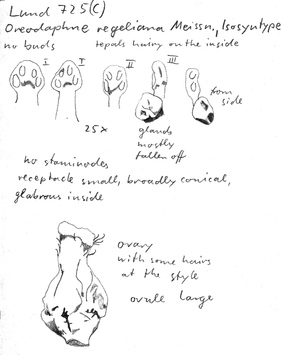 Lund 725 (C)
Oreodaphne regeliana Meissn, Isosyntype
no buds tepals hairy on the inside
I I II III
from
side
25x glands
mostly
fallen off
no staminodes
receptacle small, broadly conical,
glabrous inside
ovary
with some hairs
at the style
ovule large